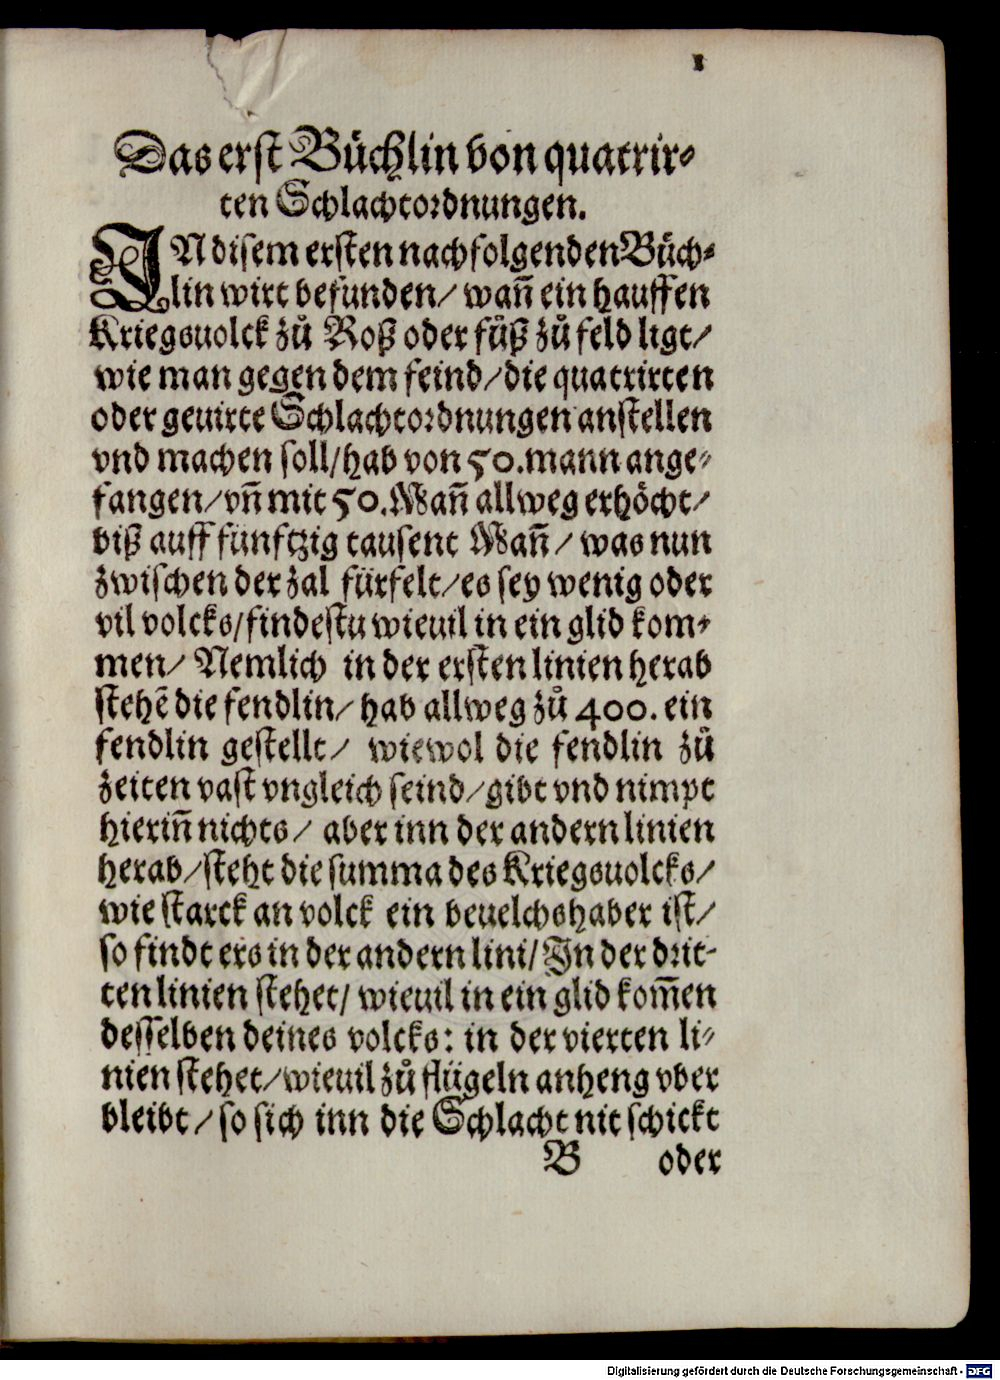 1
Das erst Büchlin von quatrir-
ten Schlachtordnungen.
IN disem ersten nachfolgenden Büch-
lin wirt befunden/ wañ ein hauffen
Kriegsuolck zů Roß oder fůß zů feld ligt/
wie man gegen dem feind/ die quatrirten
oder geuirte Schlachtordnungen anstellen
vnd machen soll/ hab von 50. mann ange-
fangen/ vñ mit 50. Mañ allweg erhöcht/
biß auff fünfftzig tausent Mañ/ was nun
zwischen der zal fürfelt/ es sey wenig oder
vil volcks/ findestu wieuil in ein glid kom-
men/ Nemlich in der ersten linien herab
stehẽ die fendlin/ hab allweg zů 400. ein
fendlin gestellt/ wiewol die fendlin zů
zeiten vast vngleich seind/ gibt vnd nimpt
hieriñ nichts/ aber inn der andern linien
herab/ steht die summa des Kriegsuolcks/
wie starck an volck ein beuelchshaber ist/
so findt ers in der andern lini/ In der drit-
ten linien stehet/ wieuil in ein glid kom̃en
desselben deines volcks: in der vierten li-
nien stehet/ wieuil zů flügeln anheng vber
bleibt/ so sich inn die Schlacht nit schickt
B oder
Digitalisierung gefördert durch die Deutsche Forschungsgemeinschaft - DFG